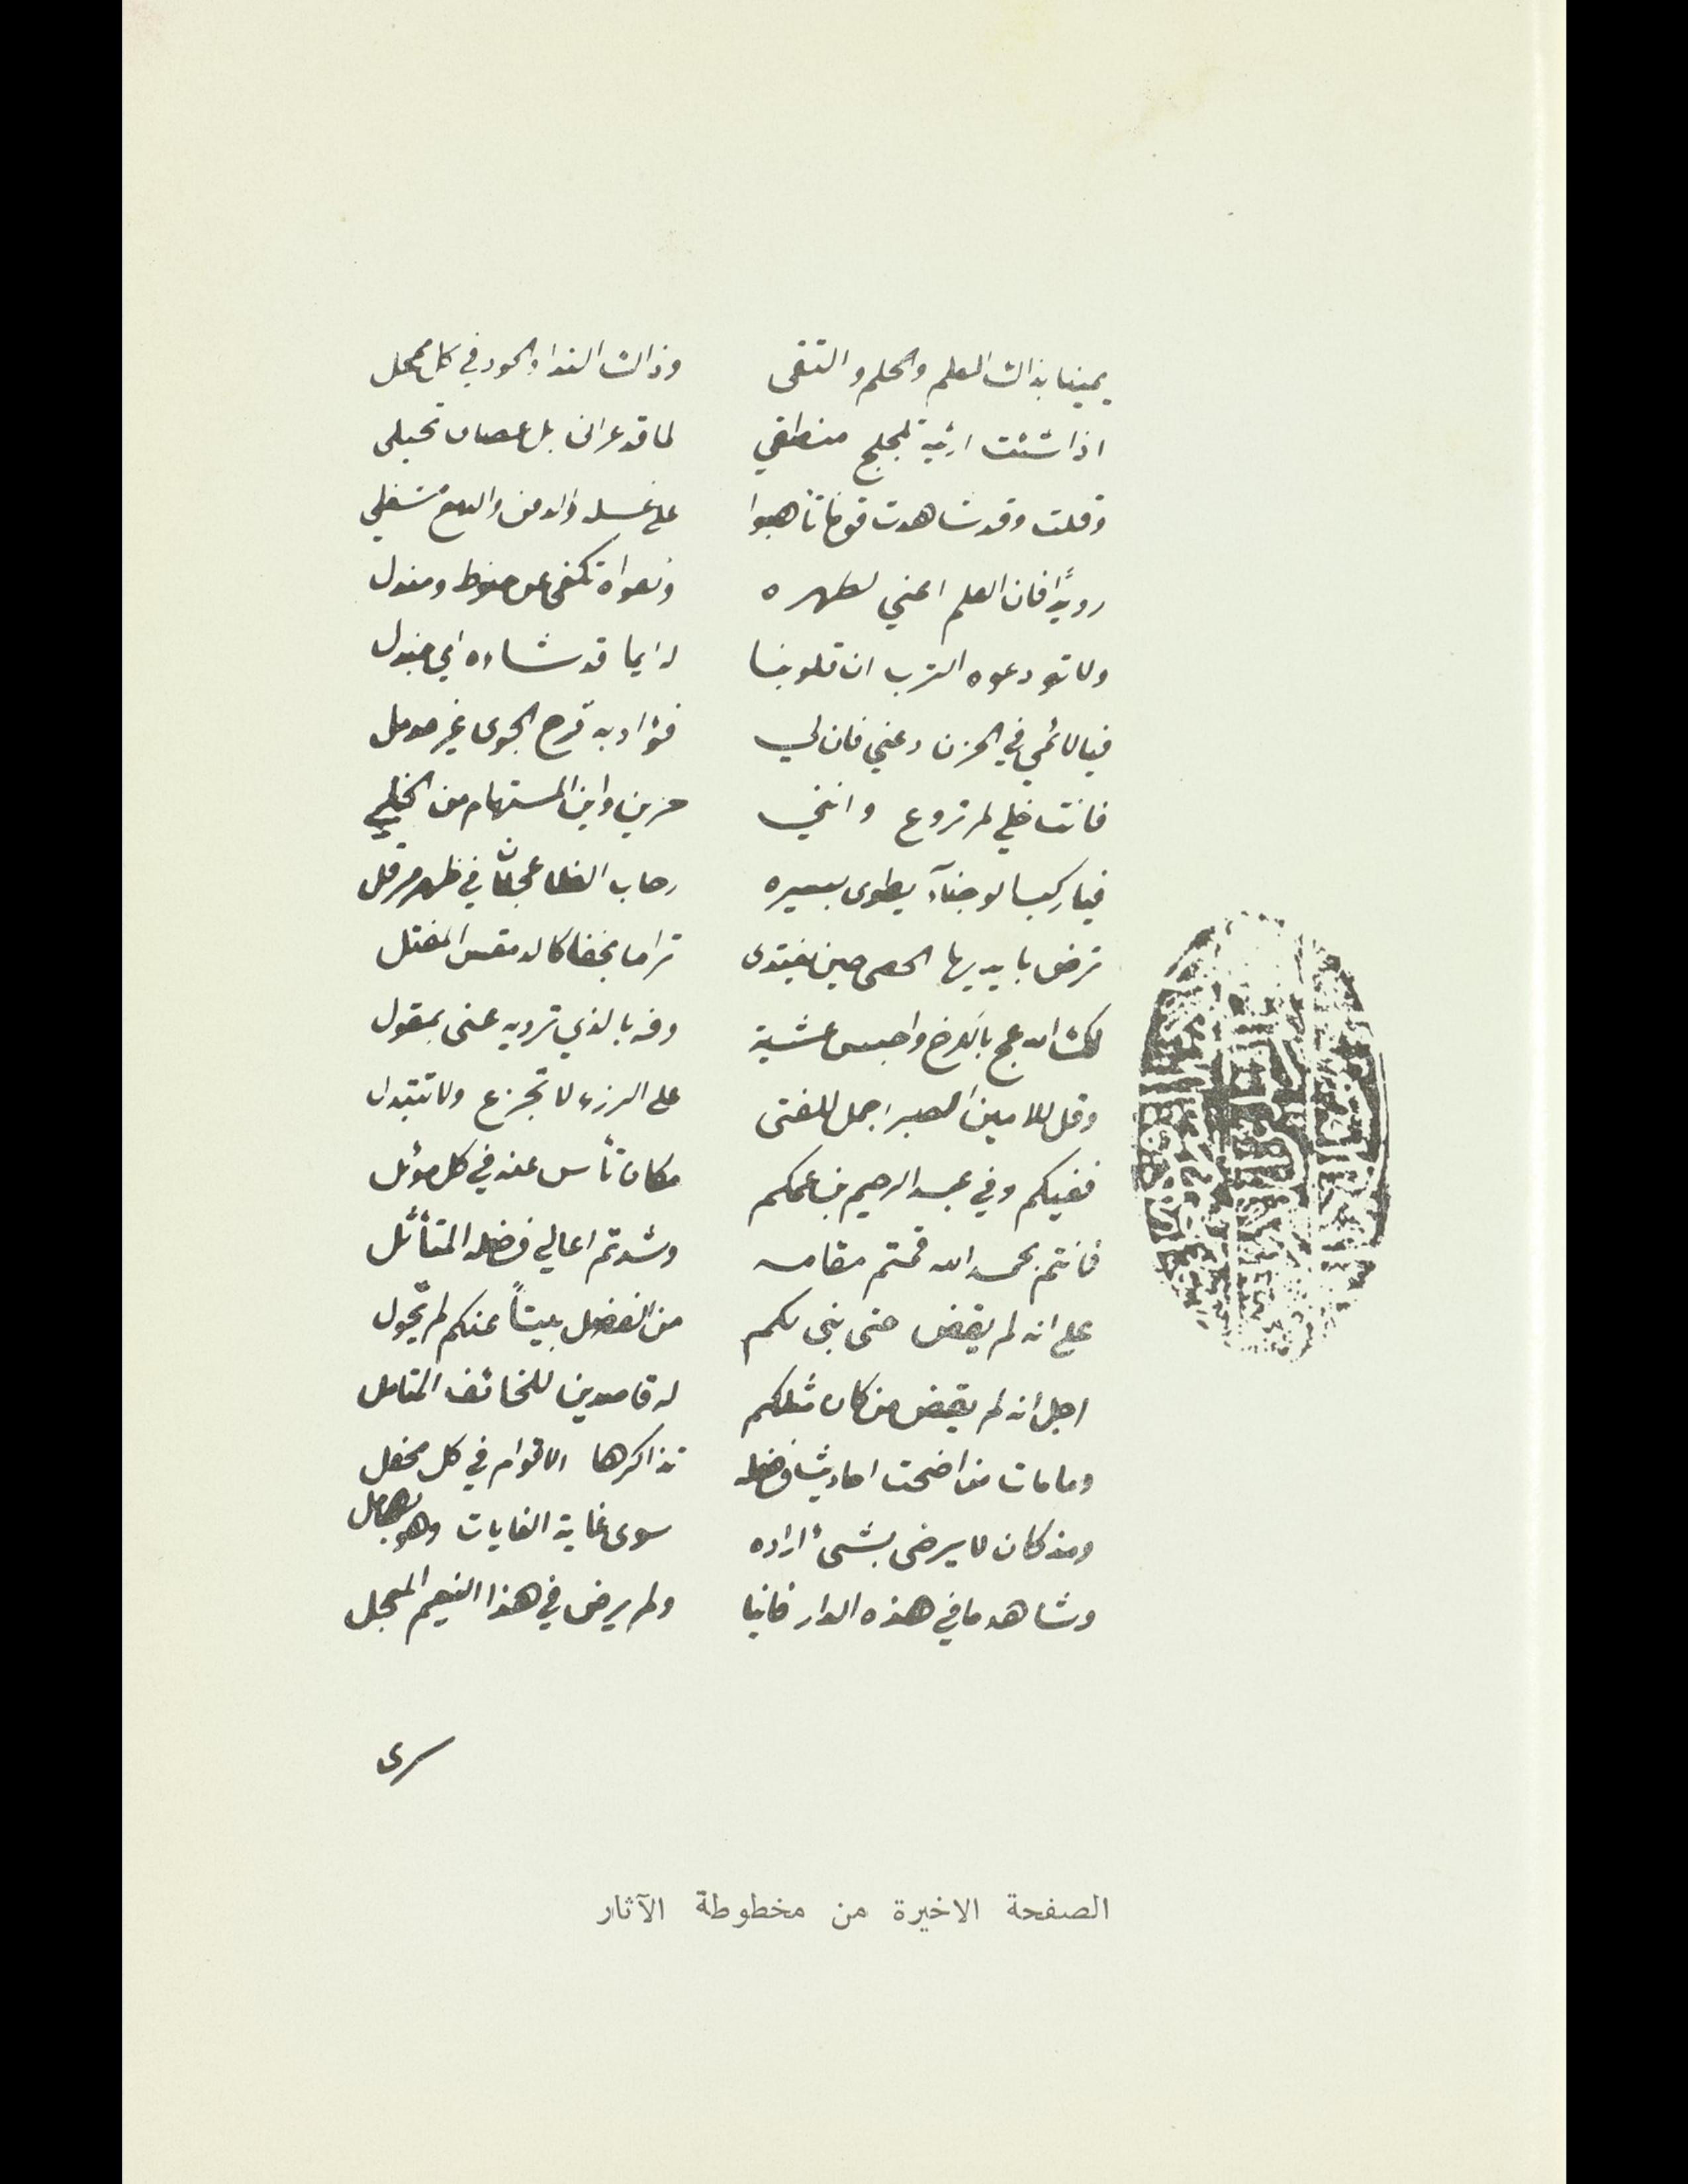 يمينا بذاك العلم والحلم والتقى وذاك الندا والجود في كل ممحل
اذا شئت ارثيه تلجلج منطقي لما قد عراني بل عصاني تحيلي
وقلت وقد شاهدت قوما تأهبوا على غسله والدفن والدمع شغلي
رويدًا فان العلم اغنى لطهره وتقواه تكفي عن حنوط ومندل
ولا تودعوه الترب ان قلوبنا له ايما قد شاده اي جندل
فيا لائمي في الحزن دعني فان لي فؤاد به قرح الجوى غير مومل
فانت خلي لم تروع وانني حزين واين المستهام من الخلي
فيا راكبا لوجنآء يطوى بسيره رحاب الفلا عجلان في ظهر مرقل
ترض بايديها الحصى حين يغتدى تراما بخفا كالدمقس المفتل
لك الله عج بالكرخ واحبس عشية وفه بالذي ترويه عني بمقول
وقل للامين الصبر اجمل للفتى على الرزء لا تجزع ولا تتبدل
ففيكم وفي عبد الرحيم بن عمكم مكان تأس عنه في كل موئل
فانتم بحمد الله قمتم مقامه وشدتم اعالي فضله المتأثل
على انه لم يقض حتى بنى لكم من الفضل بيتاً عنكم لم يحول
اجل انه لم يقض من كان مثلكم له قاصدين للخائف المتامل
وما مات من اضحت احاديث فضله تذاكرها الاقوام في كل محفل
ومذ كان لا يرضى بشئ اراده سوى غاية الغايات وهو بها
وشاهد ما في هذه الدار فانيا ولم يرض في هذا النعيم المعجل
سرى
الصفحة الاخيرة من مخطوطة الآثار